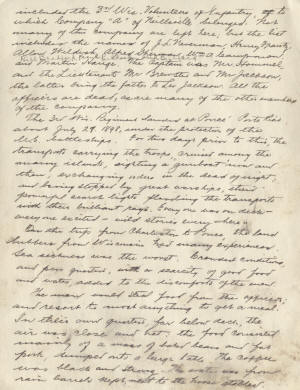 included the 3rd Wis. Volunteers of Infantry, to
which Company "A" of Neillsville belonged. Not
many of this company are left here, but the list
includes the names of
Allan
and Martin. The Captain was Mr. Hommel
and the Lieutenants Mr. Brewster and Mr. Jackson,
the latter being the father to Les Jackson. All the
officers are dead, as are many of the other members
of the company.
The 3rd Wis. Regiment landed at Ponce, Porto Rico
about July 29, 1898, under the protection of the
U.S. battleships. For two days prior to this, the
transports carrying the troops cruised among the
many islands, sighting a gunboat now and
then, exchanging in the dead of night,
and being stopped by great warships, their
powerful search lights flooding the transports
with their brilliant rays. Every one was on deck
every one excited - wild stories every where.
On the trip from Charleston to Ponce, the land
lubbers from Wisconsin had many experiences.
Sea sickness was the worst. Crowded conditions,
and poor quarters, with a scarcity of good food
and water, added to the discomforts of the men.
The men would steal food from the officers,
and resort to most anything to get a meal.
In their own quarters far below deck, the
air was close and hot, the food consisted
mainly of a mess of baked beans and fat
pork, dumped into a large tub. The coffee
was black and strong. The water was from
rain barrels kept next to the horse stables.